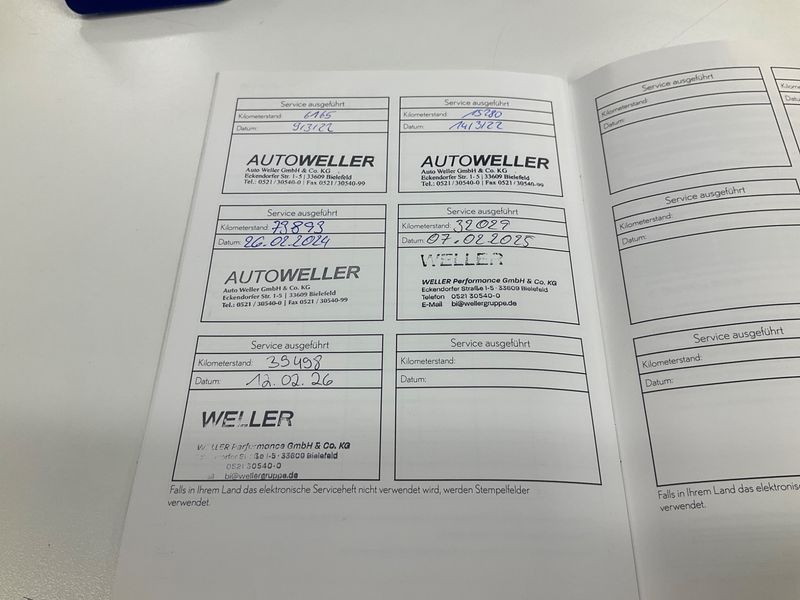 Service ausgeführt
Kilometerstand: 6165
Datum: 9/3/22
AUTOWELLER
Auto Weller GmbH & Co. KG
Eckendorfer Str. 1-5 | 33609 Bielefeld
Tel.: 0521 / 30540-0 | Fax 0521 / 30540-99
Service ausgeführt
Kilometerstand: 15280
Datum: 14/3/22
AUTOWELLER
Auto Weller GmbH & Co. KG
Eckendorfer Str. 1-5 | 33609 Bielefeld
Tel.: 0521 / 30540-0 | Fax 0521 / 30540-99
Service ausgeführt
Kilometerstand: 73893
Datum: 26.02.2024
AUTOWELLER
Auto Weller GmbH & Co. KG
Eckendorfer Str. 1-5 | 33609 Bielefeld
Tel.: 0521 / 30540-0 | Fax 0521 / 30540-99
Service ausgeführt
Kilometerstand: 32029
Datum: 07.02.2025
WELLER
WELLER Performance GmbH & Co. KG
Eckendorfer Straße 1-5 · 33609 Bielefeld
Telefon 0521 30540-0
E-Mail bi@wellergruppe.de
Service ausgeführt
Kilometerstand: 39498
Datum: 12.02.26
WELLER
WELLER Performance GmbH & Co. KG
1-5 · 33609 Bielefeld
0521 30540-0
bi@wellergruppe.de
Service ausgeführt
Kilometerstand:
Datum:
Falls in Ihrem Land das elektronische Serviceheft nicht verwendet wird, werden Stempelfelder
verwendet.
Service ausgeführt
Kilometerstand:
Datum:
Service ausgeführt
Kilometerstand:
Datum:
Service ausgeführt
Kilometerstand:
Datum:
Falls in Ihrem Land das
verwendet.